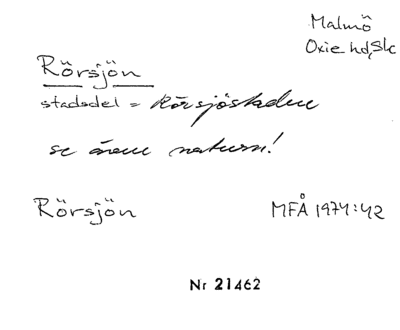 Malmö
Oxie hd, Sk
Rörsjön
stadsdel = Rörsjöstaden
se även naturn!
Rörsjön
MFÅ 1974:42
Nr 21462